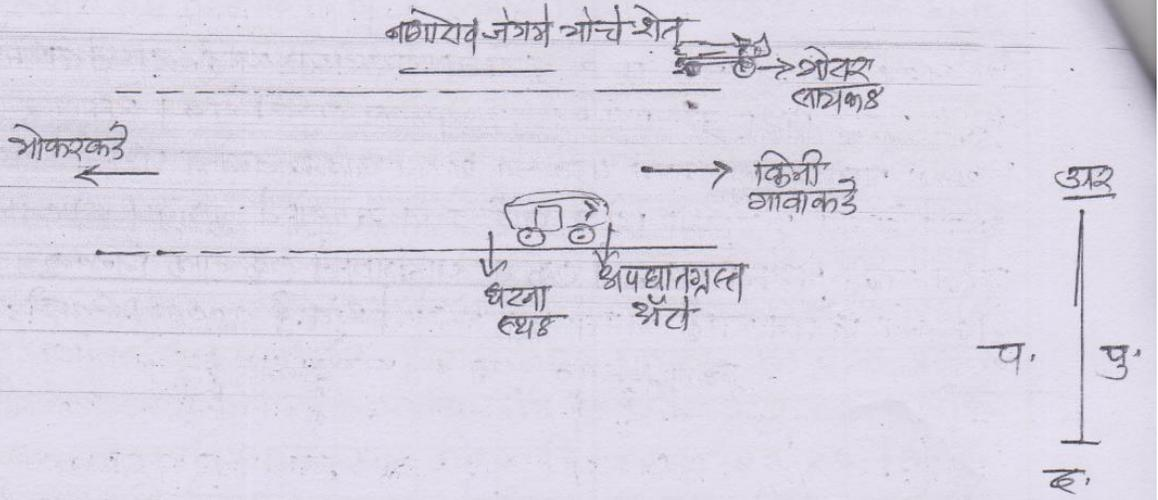 नागोराव जंगमे यांचे शेत
मोटर
सायकल
भोकरकडे
किनी
गावाकडे
उत्तर
घटना
स्थळ
अपघातग्रस्त
अॅटो
प.
पु.
द.